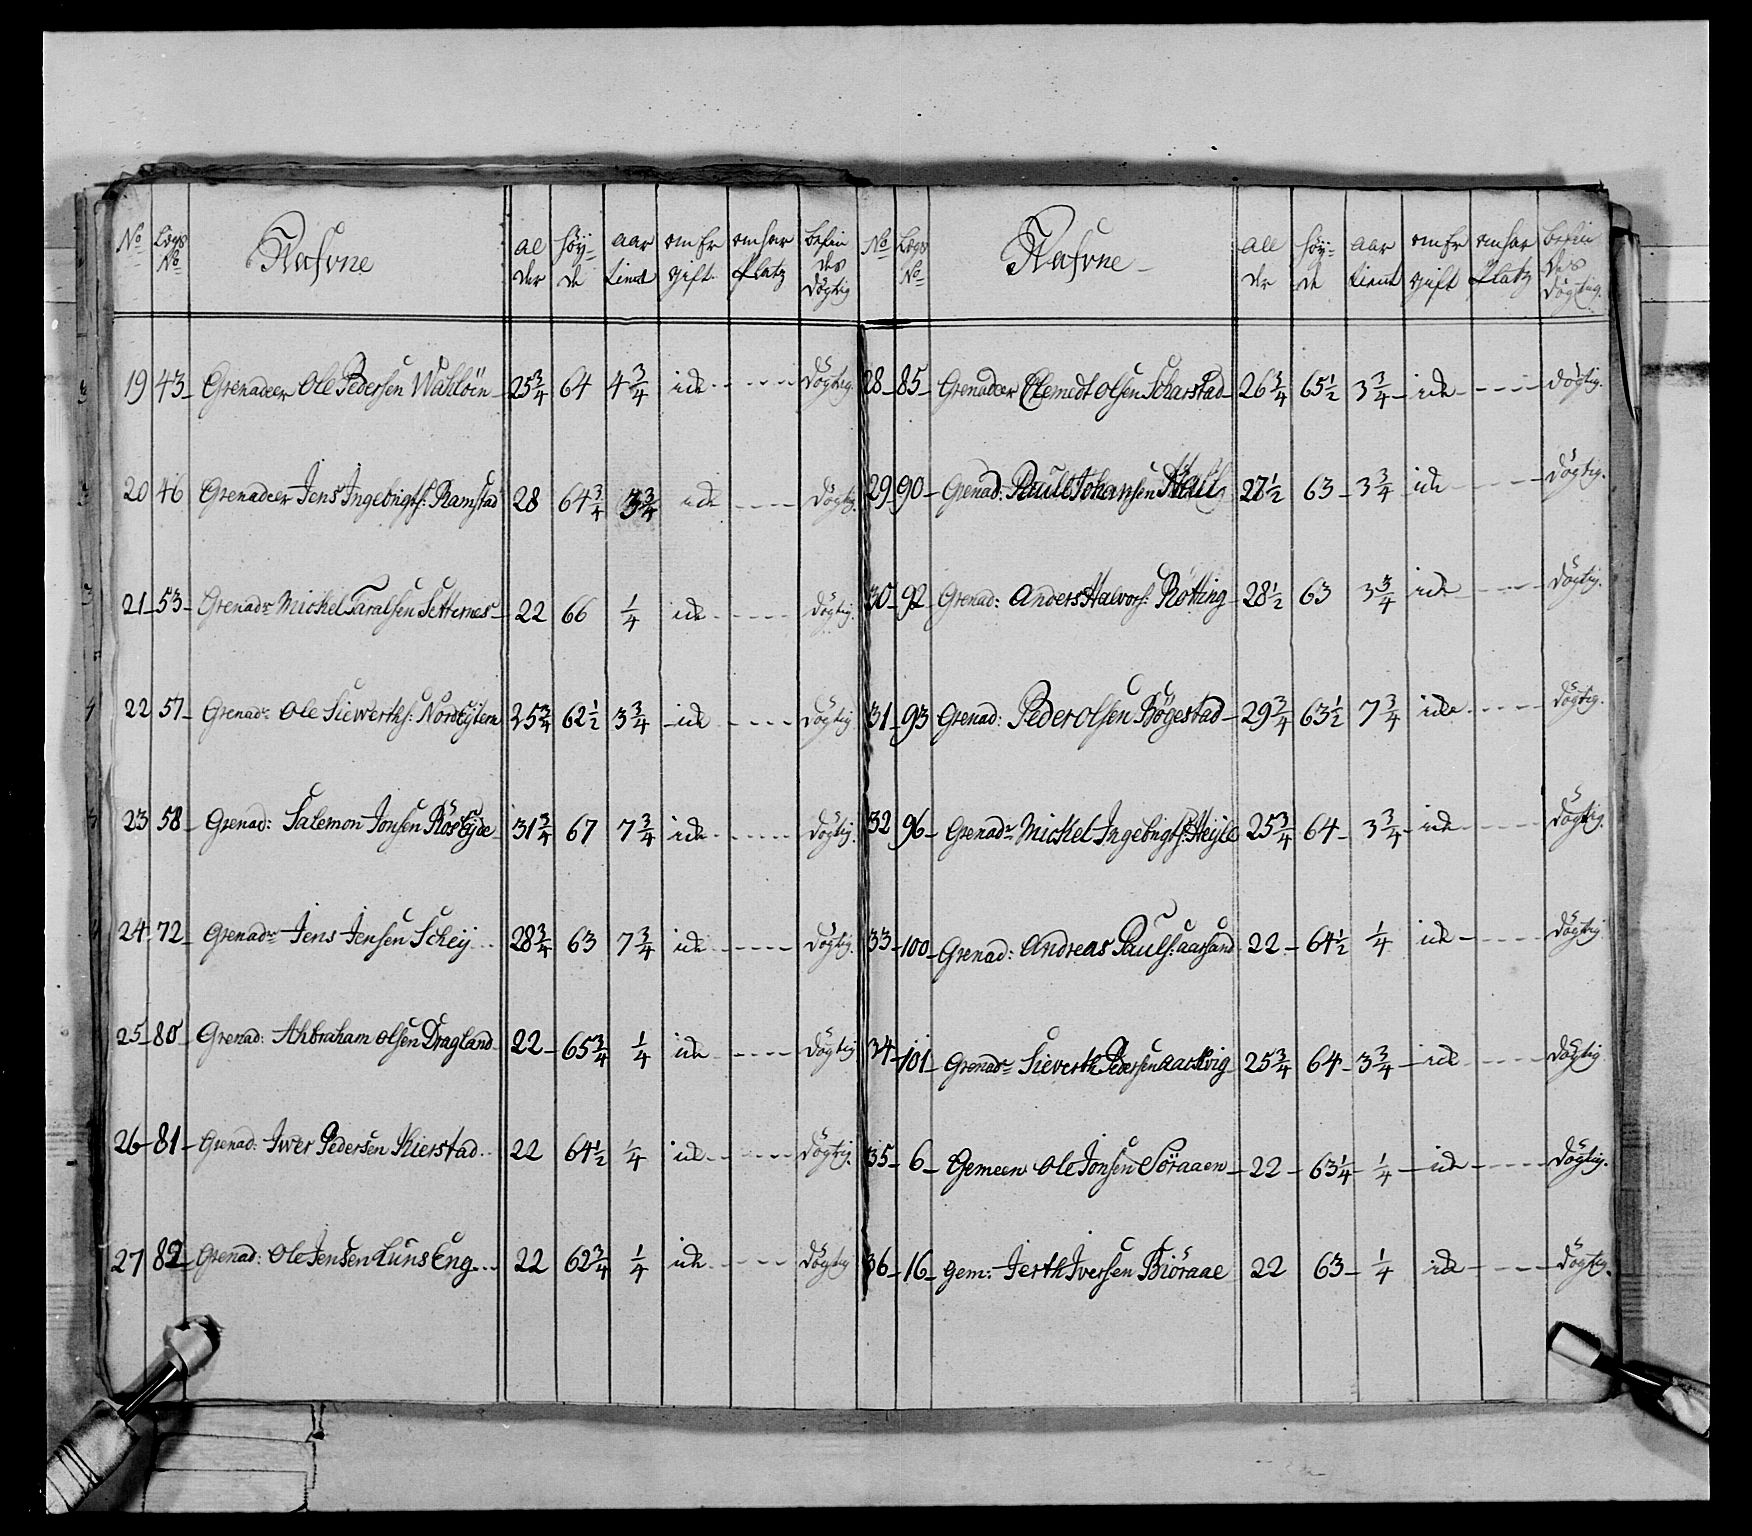 No | Lægs No | Nafvne | al der | höy- de | aar tient | om Er gift | om har Platz | befin des dögtig
19 | 43 | Grenadeer Ole Pedersen Wahlöin | 25 3/4 | 64 | 4 3/4 | icke | ---- | dögtig.
20 | 46 | Grenadeer Jens Ingebrigts: Ramstad | 28 | 64 3/4 | 3 3/4 | icke | ---- | dögtig.
21 | 53 | Grenadr Michel Taralsen Setternes | 22 | 66 | 1/4 | icke | ---- | dögtig.
22 | 57 | Grenadr Ole Siewerths: | 25 3/4 | 62 1/2 | 3 3/4 | icke | ---- | dögtig
23 | 58 | Grenad: Salemon Jonsen | 31 3/4 | 67 | 7 3/4 | icke | ---- | dögtig.
24 | 72 | Grenadr Jens Jensen Scheij | 28 3/4 | 63 | 7 3/4 | icke | ---- | dögtig.
25 | 80 | Grenad: Ahbraham olsen Dragland | 22 | 65 3/4 | 1/4 | icke | ---- | dögtig
26 | 81 | Grenad: Iwer Pedersen Kierstad | 22 | 64 1/2 | 1/4 | icke | ---- | dögtig.
27 | 82 | Grenad: Ole Jensen Luns Eng | 22 | 62 3/4 | 1/4 | icke | ---- | dögtig
No | Lægs No | Nafvne | all der | höy- de | aar tient | om Er gift | om har Platz | befin des dögtig.
28 | 85 | Grenadeer Clemedt olsen Scharstad | 26 3/4 | 65 1/2 | 3 3/4 | icke | ---- | dögtig.
29 | 90 | Grenad: Paull Johansen | 27 1/2 | 63 | 3 3/4 | icke | ---- | dögtig.
30 | 92 | Grenad: Anders Halvors: Rötting | 28 1/2 | 63 | 3 3/4 | icke | ---- | dögtig.
31 | 93 | Grenad: Peder olsen Bögestad | 29 3/4 | 63 1/2 | 7 3/4 | icke | ---- | dögtig.
32 | 96 | Grenadr Michel Ingebrigts: Heyle | 25 3/4 | 64 | 3 3/4 | icke | ---- | dögtig.
33 | 100 | Grenad: Andreas Pauls: aarsand | 22 | 64 1/2 | 1/4 | icke | ---- | dögtig
34 | 101 | Grenadr Sieverth Pedersen Aachvig | 25 3/4 | 64 | 3 3/4 | icke | ---- | dögtig
35 | 6 | Gemeen Ole Jonsen Söraaen | 22 | 63 1/4 | 1/4 | icke | ---- | dögtig.
36 | 16 | Gem: Jerth Iversen Biöraae | 22 | 63 | 1/4 | icke | ---- | dögtig.